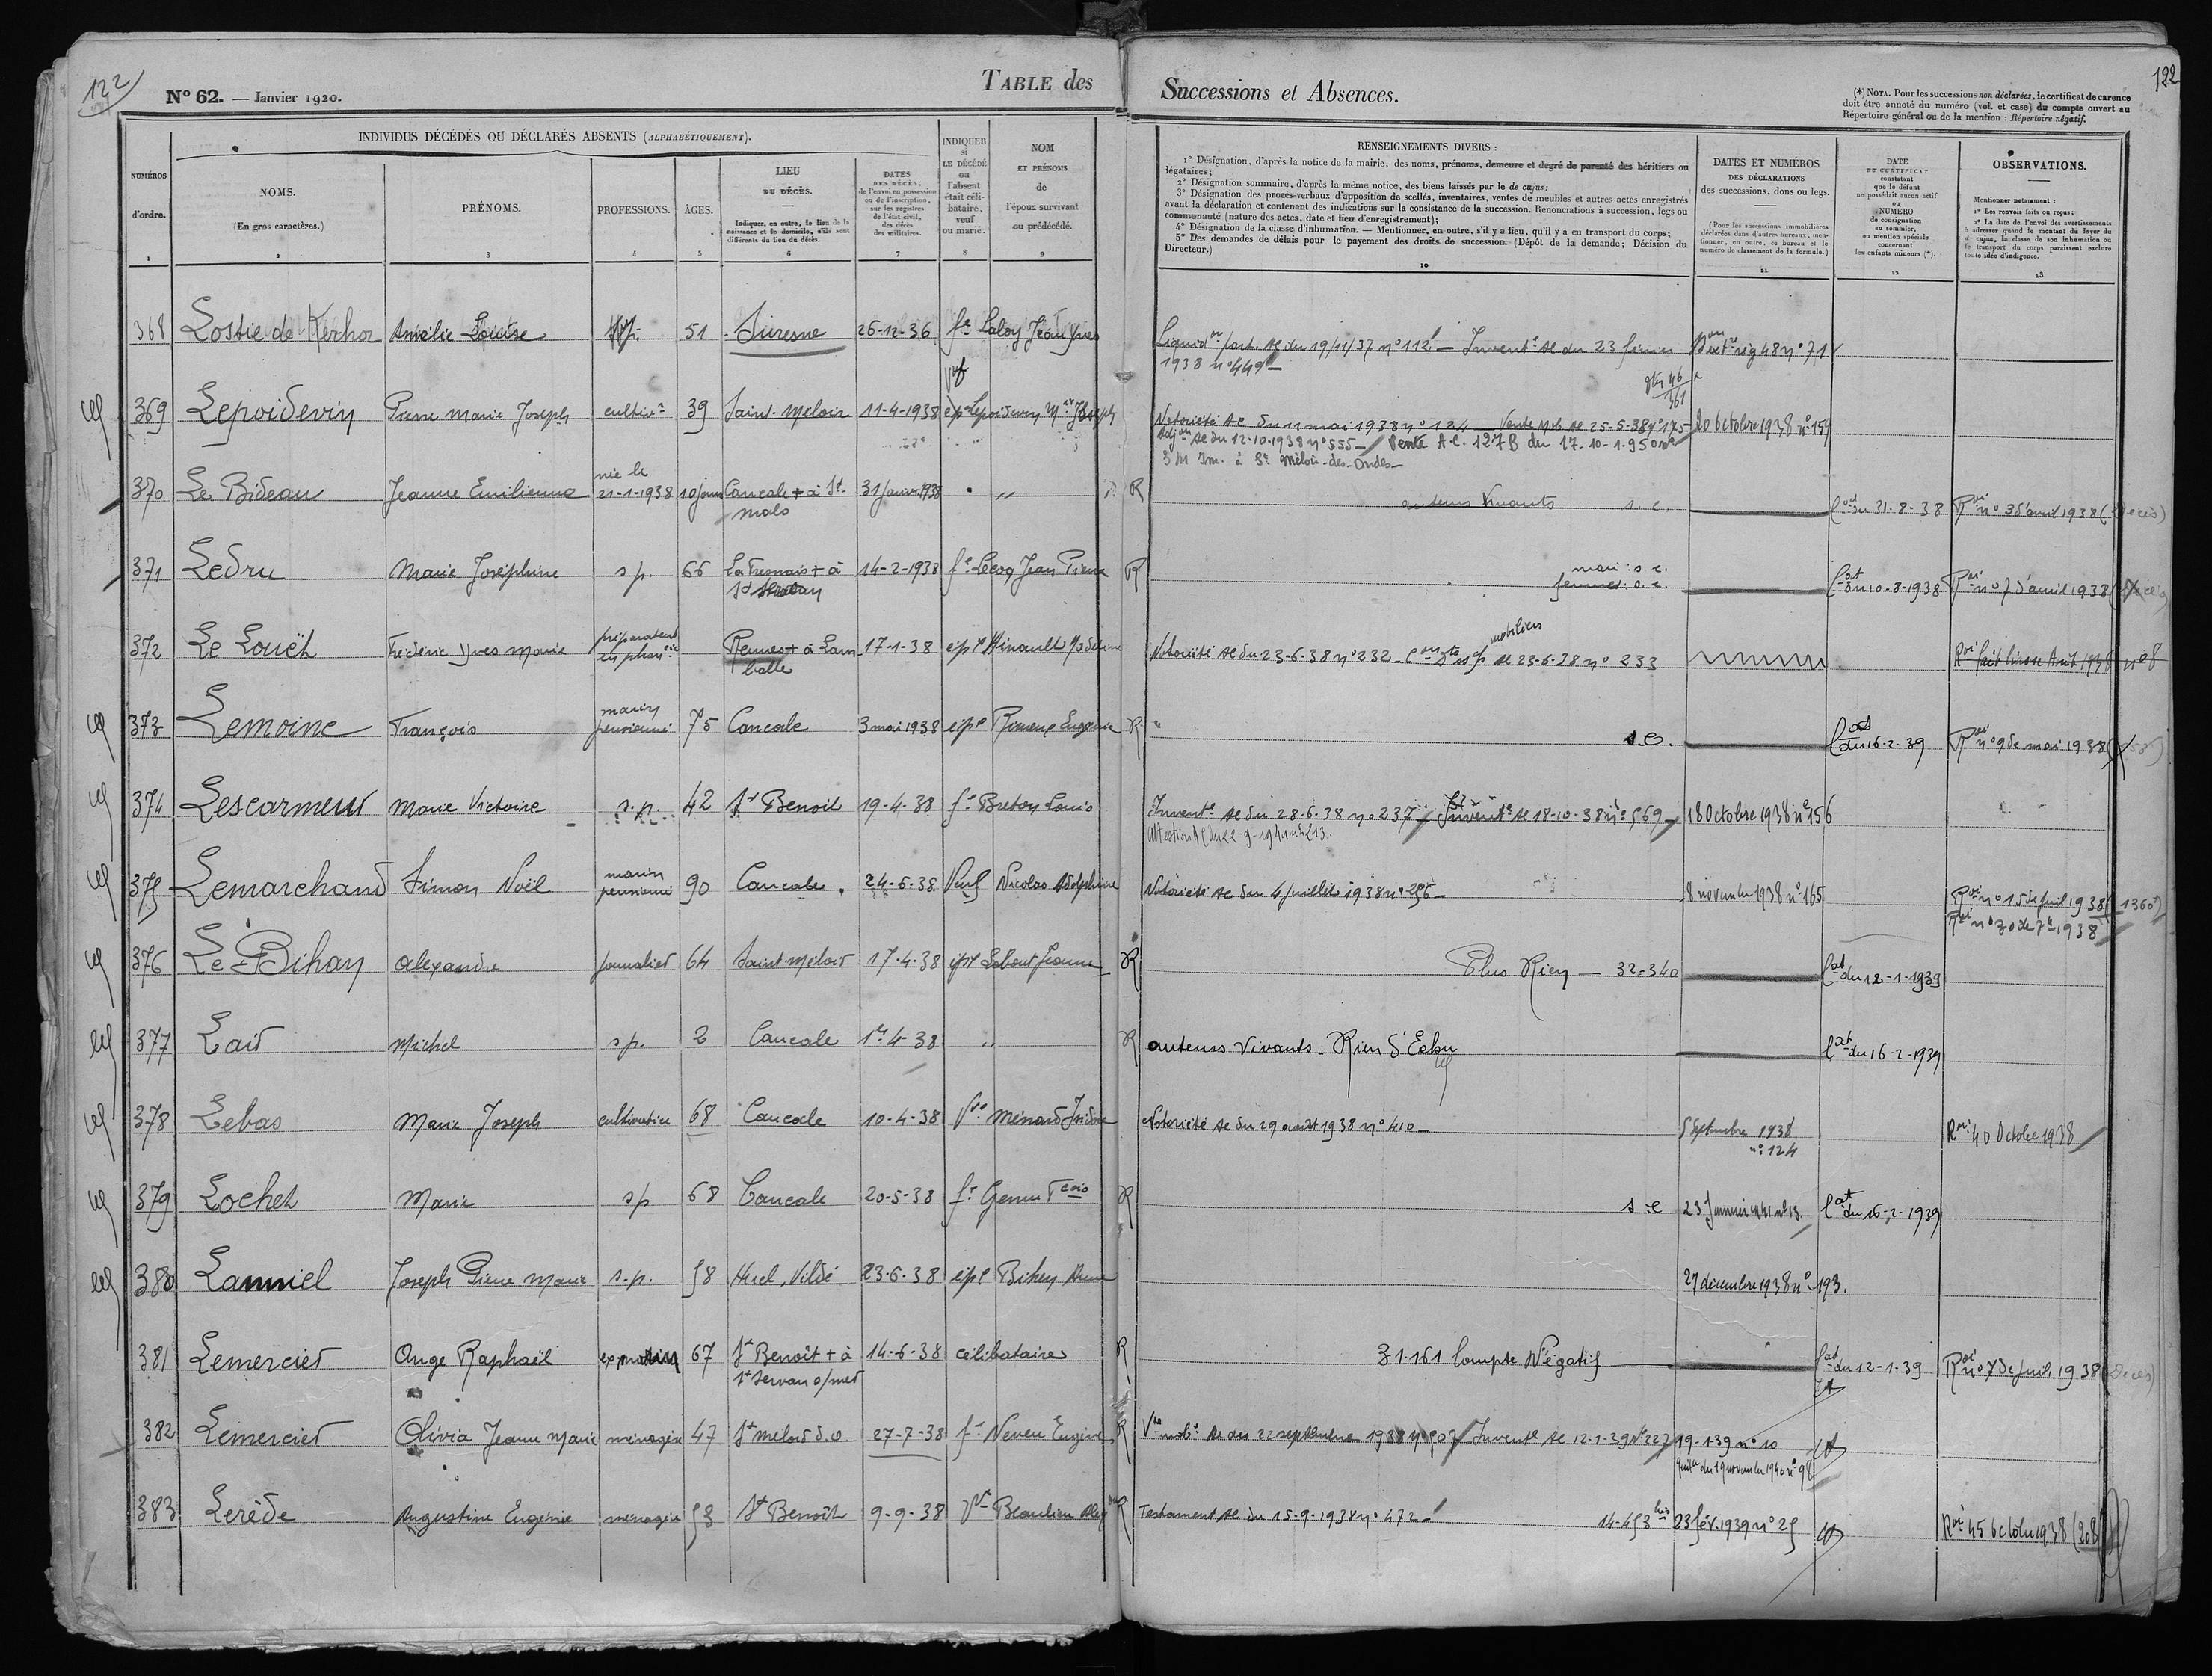 122
122
N° 62. — Janvier 1920.
TABLE des Successions et Absences.
(*) NOTA. Pour les successions non déclarées, le certificat de carence
doit être annoté du numéro (vol. et case) du compte ouvert au
Répertoire général ou de la mention : Répertoire négatif.
NUMÉROS
d'ordre.
1
INDIVIDUS DÉCÉDÉS OU DÉCLARÉS ABSENTS (ALPHABÉTIQUEMENT).
NOMS.
(En gros caractères.)
2
PRÉNOMS.
3
PROFESSIONS.
4
ÂGES.
5
LIEU
DU DÉCÈS.
Indiquer, en outre, le lieu de la
naissance et le domicile, s'ils sont
différents du lieu du décès.
6
DATES
DES DÉCÈS,
de l'envoi en possession
ou de l'inscription,
sur les registres
de l'état civil,
des décès
des militaires.
7
INDIQUER
si
LE DÉCÉDÉ
ou
l'absent
était céli-
bataire,
veuf
ou marié.
8
NOM
ET PRÉNOMS
de
l'époux survivant
ou prédécédé.
9
RENSEIGNEMENTS DIVERS :
1° Désignation, d'après la notice de la mairie, des noms, prénoms, demeure et degré de parenté des héritiers ou
légataires;
2° Désignation sommaire, d'après la même notice, des biens laissés par le de cujus;
3° Désignation des procès-verbaux d'apposition de scellés, inventaires, ventes de meubles et autres actes enregistrés
avant la déclaration et contenant des indications sur la consistance de la succession. Renonciations à succession, legs ou
communauté (nature des actes, date et lieu d'enregistrement);
4° Désignation de la classe d'inhumation. — Mentionner, en outre, s'il y a lieu, qu'il y a eu transport du corps;
5° Des demandes de délais pour le payement des droits de succession. (Dépôt de la demande; Décision du
Directeur.)
10
DATES ET NUMÉROS
DES DÉCLARATIONS
des successions, dons ou legs.
(Pour les successions immobilières
déclarées dans d'autres bureaux, men-
tionner, en outre, ce bureau et le
numéro de classement de la formule.)
11
DATE
DU CERTIFICAT
constatant
que le défunt
ne possédait aucun actif
ou
NUMÉRO
de consignation
au sommier,
ou mention spéciale
concernant
les enfants mineurs (*).
12
OBSERVATIONS.
Mentionner notamment :
1° Les renvois faits ou reçus;
2° La date de l'envoi des avertissements
à adresser quand le montant du loyer du
de cujus, la classe de son inhumation ou
le transport du corps paraissent exclure
toute idée d'indigence.
13
368 Lostie de Kerhor Amélie Louise 51 Suresne 26-12-36 fe Laloy Jean Yves
Liquidon part. Ac du 19/11/37 n° 112 — Invente Ac du 23 février
1938 n° 449 —
369 Lepoidevin Pierre Marie Joseph cultivr 39 Saint-Meloir 11-4-1938
Notoriété Ac du 11 mai 1938 n° 124 — Vente Mob Ac 25-5-38 n° 175 20 octobre 1938 n° 159
Adjon Ac du 12-10-1938 n° 555 — Vente A.C. 127B du 17-10-1950
à St Méloir-des-Ondes —
370 Le Bideau Jeanne Emilienne née le
21-1-1938 10 jours Cancale + à St
Malo 31 janvier 1938 " R auteurs vivants s.c. Cat du 31-8-38 Roi n° 3 d'avril 1938 (Décès)
371 Ledru Marie Joséphine s.p. 66 La Fresnais + à
St Servan 14-2-1938 fe Lecoq Jean Pierre R mari : s.c. Cat du 10-8-1938 Roi n° 7 d'avril 1938
372 Le Louët Frédéric Yves Marie préparateur
en pharcie Rennes + à Lam
balle 17-1-38 épx Hinault Madeleine
Notoriété Ac du 23-6-38 n° 232 — mobiliers Ac 23-6-38 n° 233 Roi fait liasse Août 1938 n° 8
373 Lemoine François marin
pensionné 75 Cancale 3 mai 1938 épx Rimeux Eugénie R s.c. Cat du 16-2-39 Roi n° 9 de mai 1938
374 Lescarmeur Marie Victoire s.p. 42 St Benoit 19-4-38 fe Breton Louis
Invente Ac du 28-6-38 n° 237 — Invente Ac 18-10-38 n° 569 — 18 Octobre 1938 n° 156
375 Lemarchand Simon Noël marin
pensionné 90 Cancale 24-6-38 Veuf Nicolas Adolphine
Notoriété Ac du 4 juillet 1938 n° 256 — 8 novembre 1938 n° 165 Roi n° 15 de juil 1938 (1360)
Roi n° 30 de 7e 1938
376 Le Bihan Alexandre journalier 64 Saint-Meloir 17-4-38 épx Lebout Jeanne R Plus Rien — 32-340 Cat du 12-1-1939
377 Lair Michel s.p. 2 Cancale 1er-4-38 " R auteurs vivants - Rien d'Echu Cat du 16-2-1939
378 Lebas Marie Joseph cultivatrice 68 Cancale 10-4-38 Vve Ménard Isidore Notoriété Ac du 29 août 1938 n° 410 — 5 Septembre 1938
n° 124 Roi 40 Octobre 1938
379 Lochet Marie s.p 68 Cancale 20-5-38 fe Genu Fcois R s.c 23 janvier 1941 n° 13 Cat du 16-2-1939
380 Lamniel Joseph Pierre Marie s.p. 58 Hirel, Vildé 23-6-38 épx Bihen Anne 27 décembre 1938 n° 193.
381 Lemercier Ange Raphaël ex marin 67 St Benoît + à
St Servan s/mer 14-6-38 célibataire R 31-161 Compte Négatif Cat du 12-1-39 Roi n° 7 de juil. 1938 (Décès)
382 Lemercier Olivia Jeanne Marie ménagère 47 St Meloir d.o. 27-7-38 fe Neveu Eugène R
Vte mobe Ac du 22 septembre 1938 n° 503 / Invente Ac 12-1-39 n° 227 19-1-39 n° 10
du 19 novembre 1940 n° 98
383 Lerède Augustine Eugénie ménagère 53 St Benoît 9-9-38 Vve Beaulieu R Testament Ac du 15-9-1938 n° 472 14-453 bis 23 fév. 1939 n° 25 Roi 45 octobre 1938 (208)